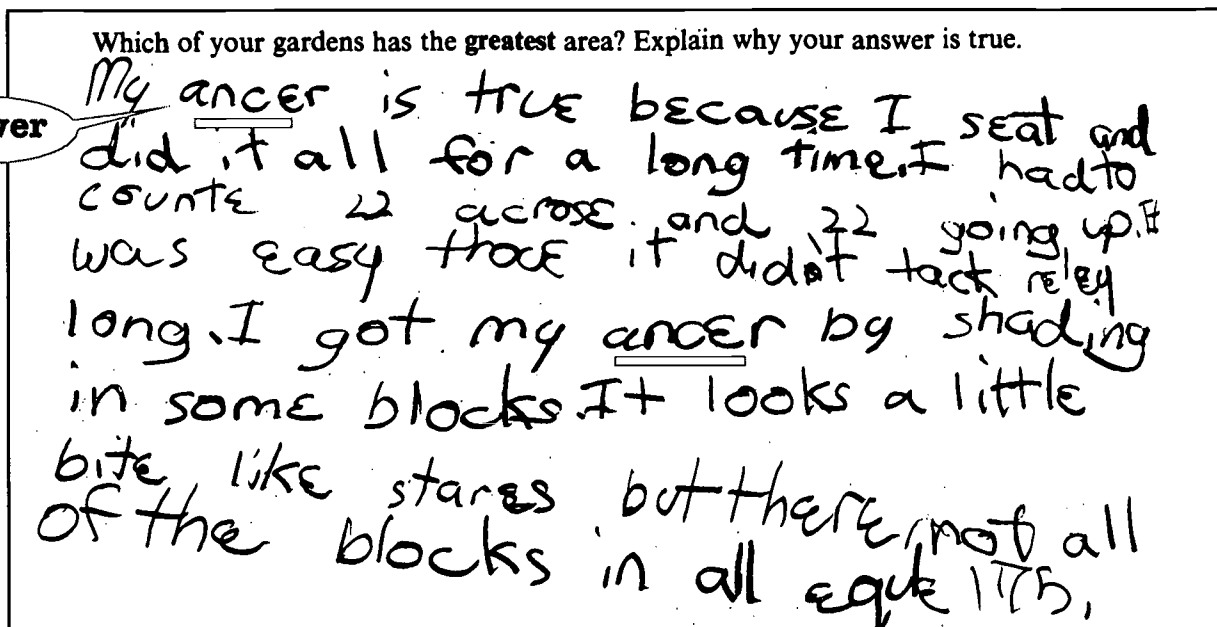 Which of your gardens has the greatest area? Explain why your answer is true.
My ancer is true because I seat and
ver
did it all for a long time. I had to
counte 22 acrose and 22 going up. It
was easy thoce it didn't tack reley
long. I got my ancer by shading
in some blocks. It looks a little
bite like stares but there not all
of the blocks in all eque 175.